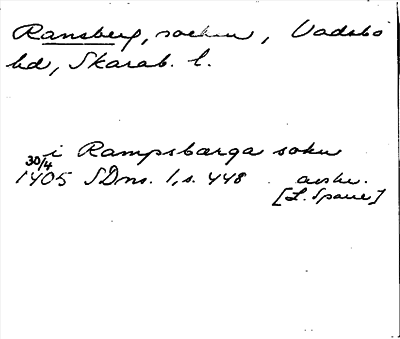 Ransberg, socken, Vadsbo
hd, Skarab. l.
i Rampsbærga sokn
30/4
1405 SDns. 1, s. 448 avskr.
[L. Spane]